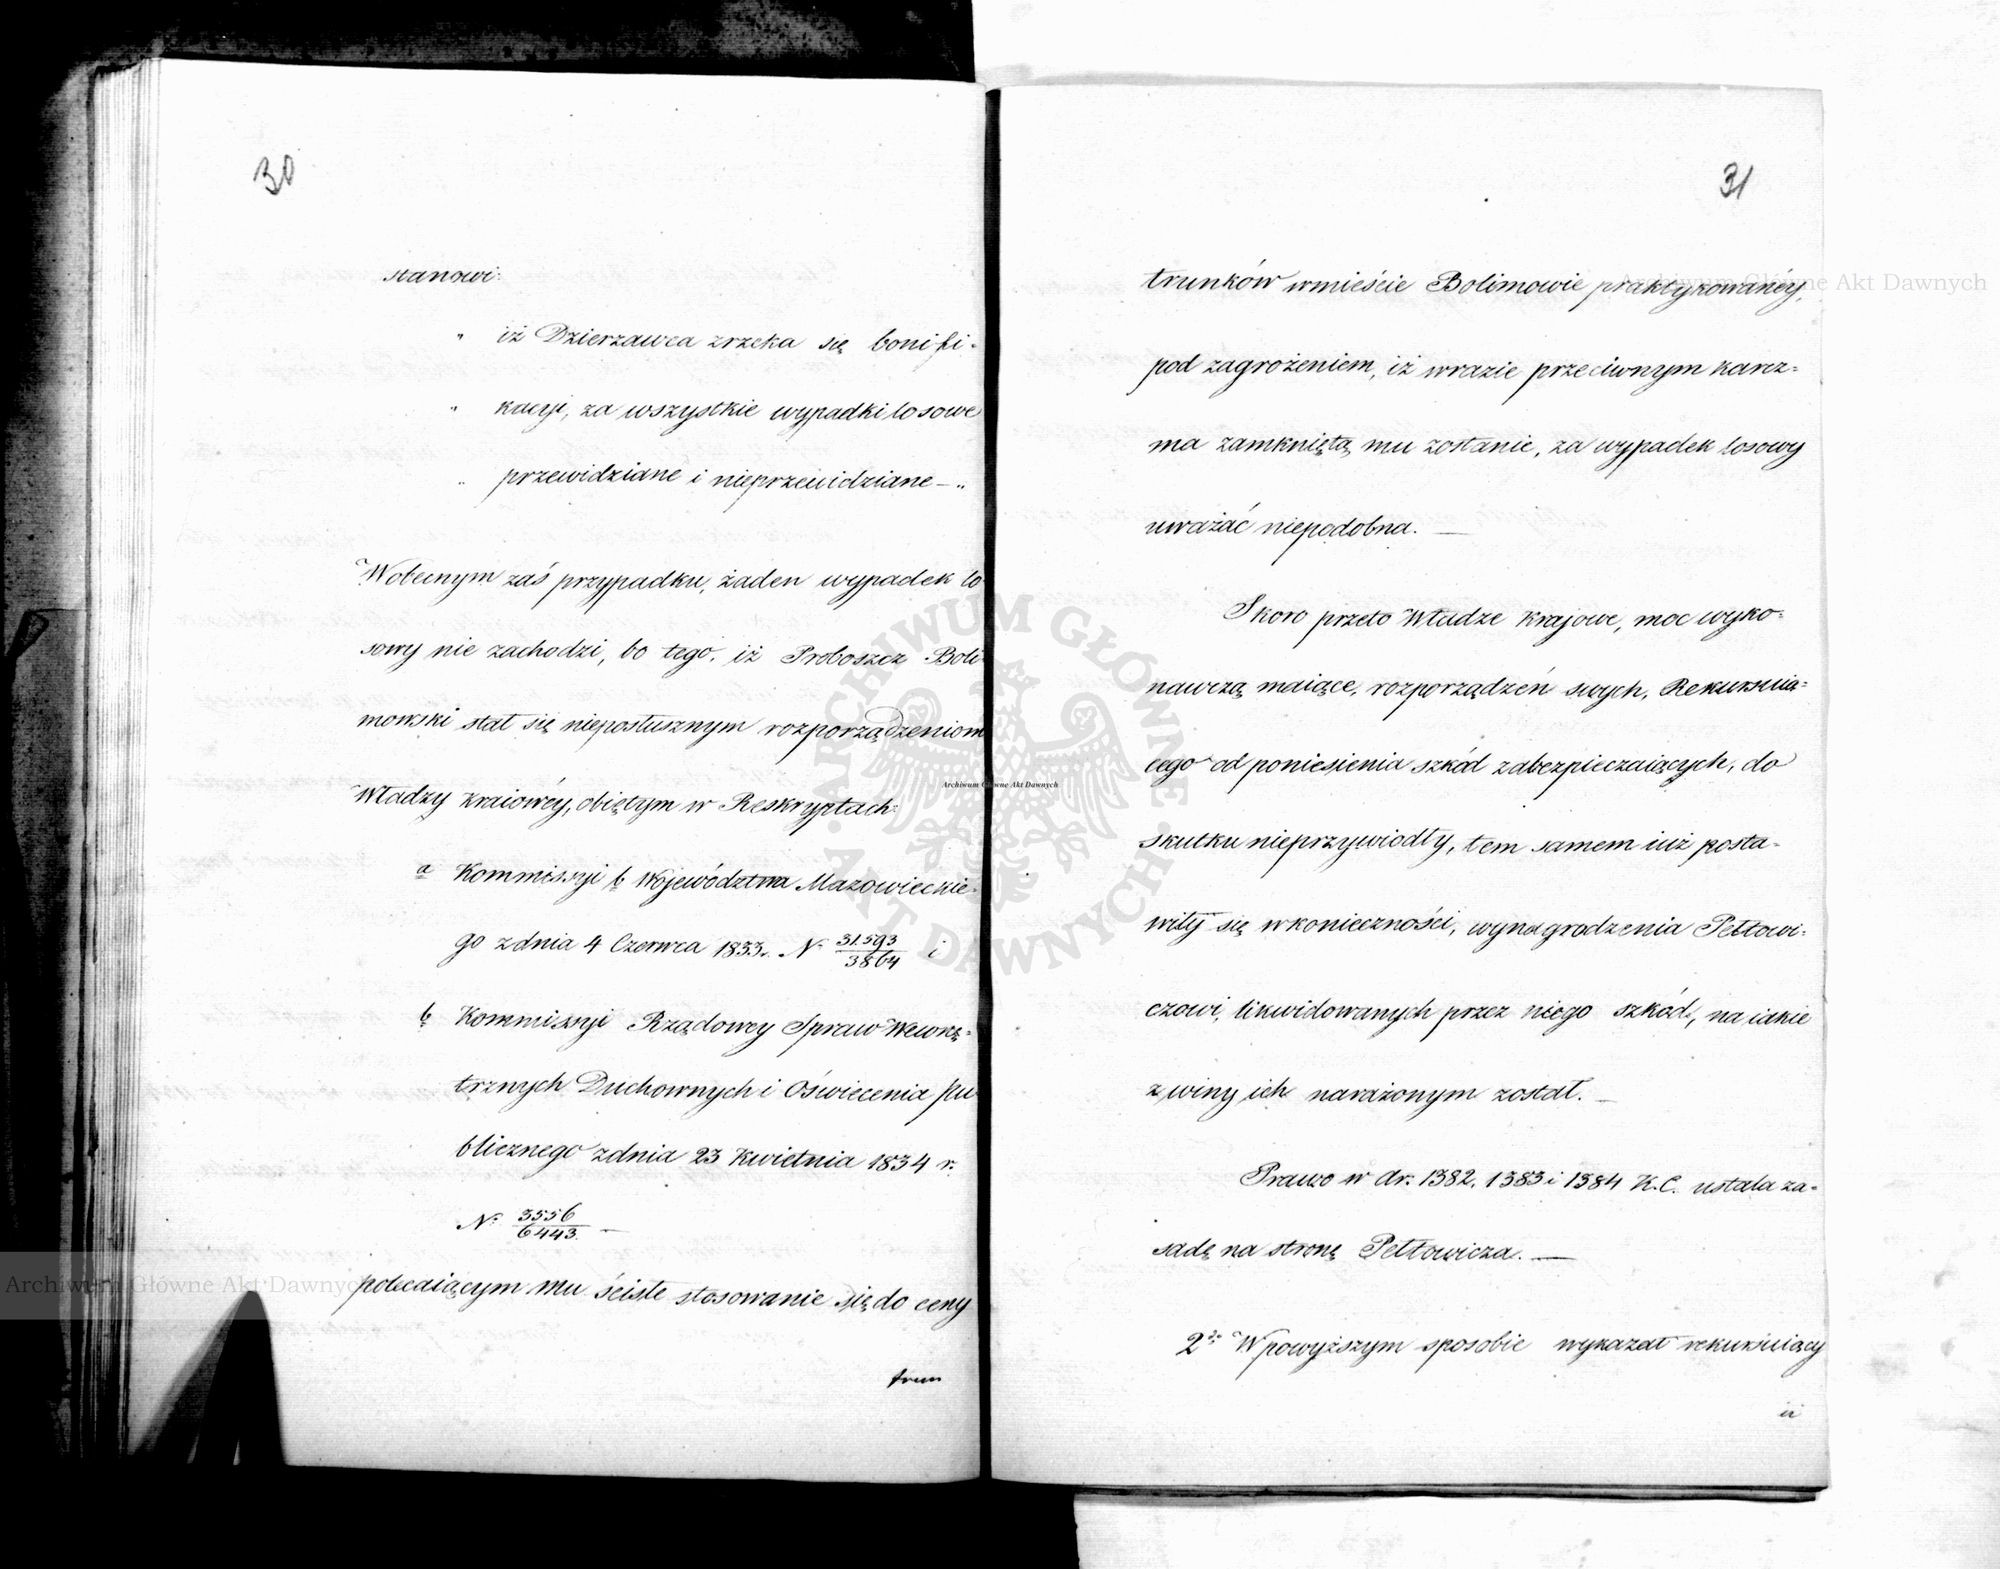 30
stanowi:
" iż Dzierzawca zrzeka się bonifi-
" kacyi, za wszystkie wypadki losowe
" przewidziane i nieprzewidziane – "
W obecnym zaś przypadku, żaden wypadek lo
sowy nie zachodzi, bo tego, iż Proboszcz Boli
mowski stał się nieposłusznym rozporządzeniom
Władzy kraiowéy, obiętym w Reskryptach:
a Kommissyi b Województwa Mazowieckie-
go z dnia 4 Czerwca 1833 r. N. 31.593/3864 i
b Kommissyi Rządowey Spraw Wewnę-
trznych Duchownych i Oświecenia Pu
blicznego z dnia 23 Kwietnia 1834 r.
N. 3556/6443. –
polecaiącym mu ściśle stosowanie się do ceny
trun
31
trunków w mieście Bolimowie praktykowanéy,
pod zagrożeniem, iż w razie przeciwnym karcz-
ma zamkniętą mu zostanie, za wypadek losowy
uważać niepodobna. —
Skoro przeto Władze Krajowe, moc wyko-
nawczą maiące, rozporządzeń swych, Rekursuią-
cego od poniesienia szkód zabezpieczaiących, do
skutku nieprzywiodły, tem samem iuż posta-
wiły się w konieczności, wynagrodzenia Pełtowi-
czowi, likwidowanych przez niego szkód, na iakie
z winy ich narażonym został. —
Prawo w Ar. 1382, 1383 i 1384 K.C. ustala za-
sadę na stronę Pełtowicza. —
2do W powyższym sposobie wykazał rekursuiący
iż
Archiwum Główne Akt Dawnych
Archiwum Główne Akt Dawnych
Archiwum Główne Akt Dawnych
ARCHIWUM GŁÓWNE AKT DAWNYCH